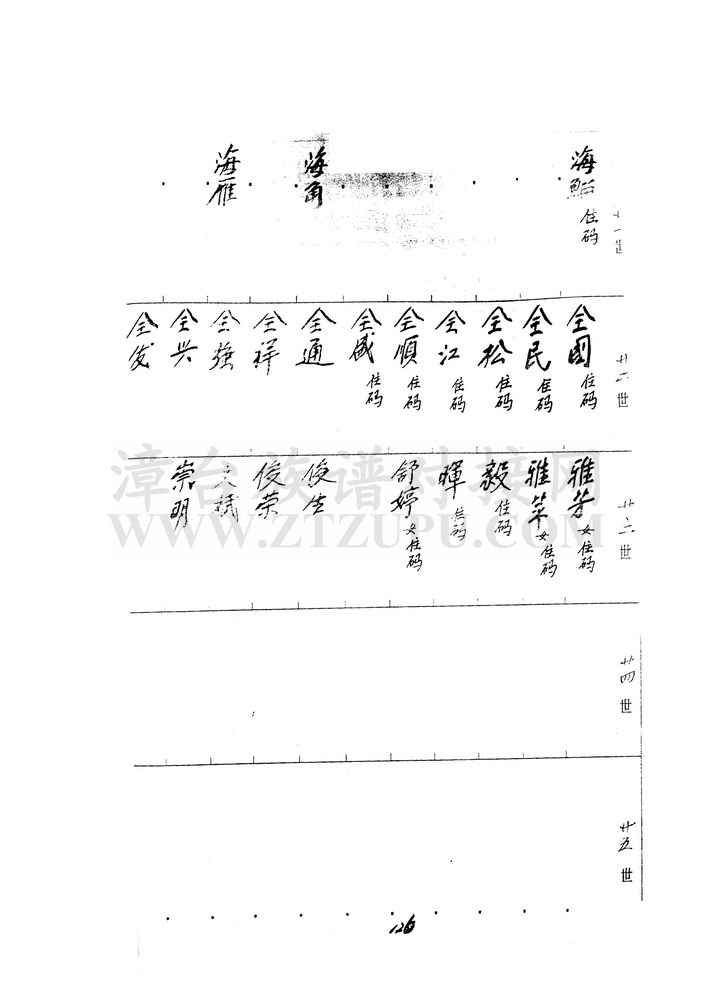 海 住码
海
海雁
廿二世
全國 住码
全民 住码
全松 住码
全江 住码
全順 住码
全盛 住码
全通
全祥
全强
全兴
全发
世
雅芳 女住码
雅苹 女住码
毅 住码
暉 住码
舒婷 女住码
俊生
俊荣
文斌
崇明
廿四世
廿五世
126
漳台族谱对接网
WWW.ZTZUPU.COM